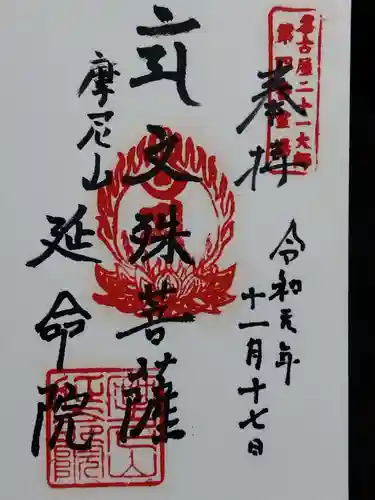 奉拝
令和元年
十一月十七日
文殊菩薩
摩尼山
延命院
名古屋二十一大師